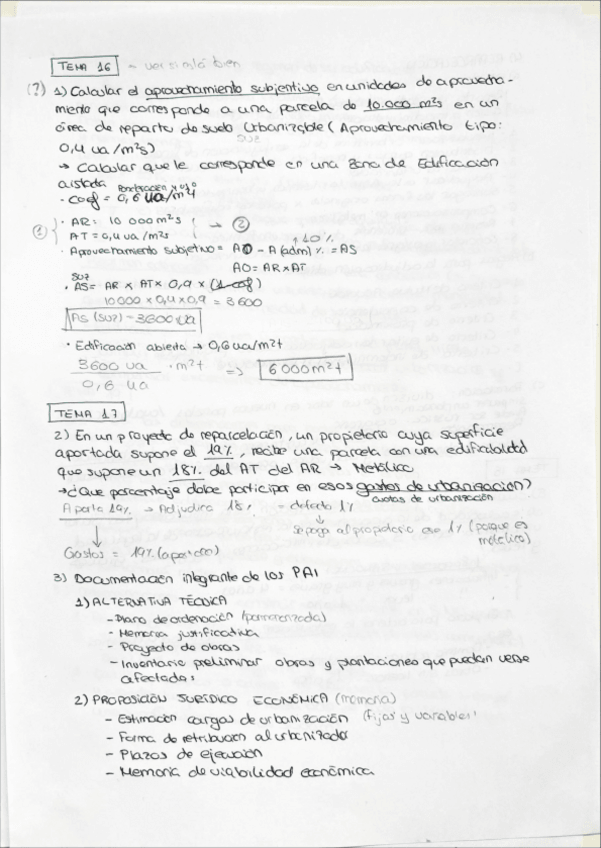 TEMA 16 - ver si está bien
(?) 1) Calcular el aprovechamiento subjetivo en unidades de aprovecha-
miento que corresponde a una parcela de 10.000 m²s en un
área de reparto de suelo Urbanizable (Aprovechamiento tipo:
0,4 ua/m²s) SUZ
→ Calcular que le corresponde en una zona de Edificación
aislada
· Coef = 0,6 ua/m²t
① · AR = 10 000 m²s → ②
AT = 0,4 ua/m²s
↑ 10%
· Aprovechamiento subjetivo = AO - A(adm) % = AS
AO = AR x AT
SUZ
· AS = AR x AT x 0,9 x (1-coef)
10000 x 0,4 x 0,9 = 3600
AS (SUZ) = 3600 ua
· Edificación abierta → 0,6 ua/m²t
3600 ua · m²t => 6000 m²t
0,6 ua
TEMA 17
2) En un proyecto de reparcelación, un propietario cuya superficie
aportada supone el 19%, recibe una parcela con una edificabilidad
que supone un 18% del AT del AR → Metálico
→ ¿Que porcentaje debe participar en esos gastos de urbanización?
cuotas de urbanización
Aporta 19% → Adjudica 18% = defecto 1%
Se paga al propietario ese 1% (porque es
metálico)
Gastos = 19% (aportado)
3) Documentación integrante de los PAI
1) ALTERNATIVA TÉCNICA
- Plano de ordenación (pormenorizada)
- Memoria justificativa
- Proyecto de obras
- Inventario preliminar obras y plantaciones que puedan verse
afectadas
2) PROPOSICIÓN JURÍDICO ECONÓMICA (memoria)
- Estimación cargas de urbanización (Fijas y variables)
- Forma de retribución al urbanizador
- Plazos de ejecución
- Memoria de viabilidad económica